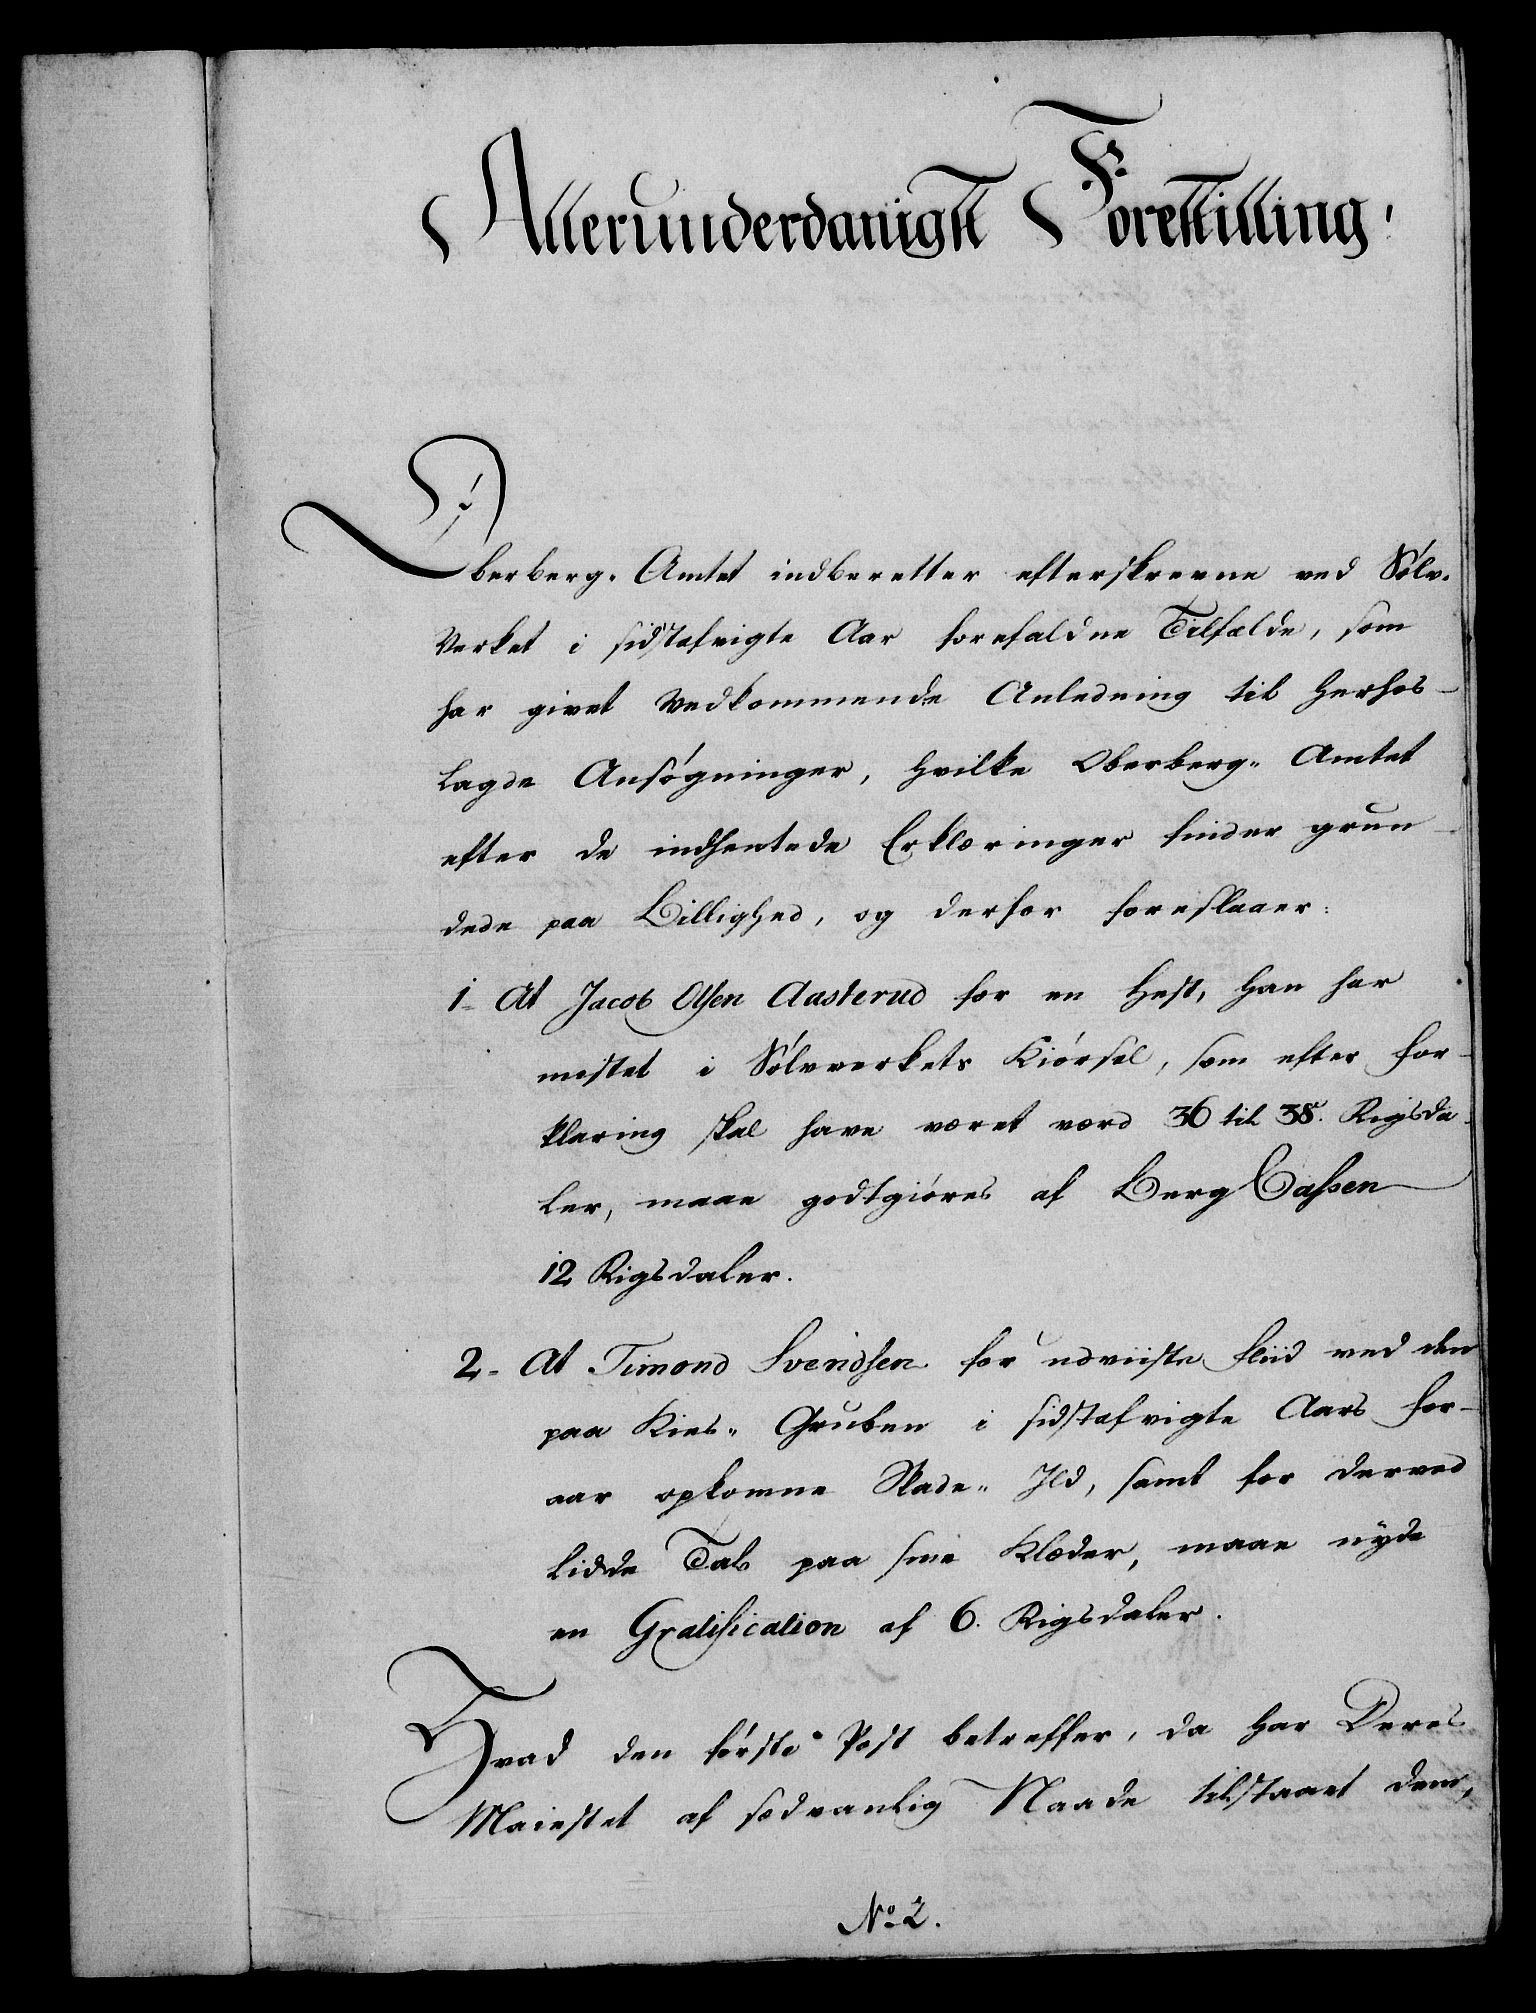 Allerunderdanigst Forestilling.
Oberberg-Amtet indberetter efterskrevne ved Sølv-
Verket i sidstafvigte Aar forefaldne Tilfælde, som
har givet Vedkommende Anledning til herhos-
lagde Ansøgninger, hvilke Oberberg-Amtet
efter de indhentede Erklæringer finder grun-
dede paa Billighed, og derfor foreslaaer:
1- At Jacob Olsen Aasterud for en Hest, han har
mistet i Sølvverkets Kiørsel, som efter For-
klaring skal have været værd 36 til 38. Rigsda-
ler, maae godtgiøres af Berg Cassen
12 Rigsdaler.
2- At Timond Svendsen for udviiste Fliid ved den
paa Kies-Gruben i sidstafvigte Aars For-
aar opkomne Skade-Ild, samt for derved
lidde Tab paa sine Klæder, maae nyde
en Gratification af 6. Rigsdaler.
Hvad den første Post betreffer, da har Deres
Maiestet af sædvanlig Naade tilstaaet dem,
No 2.